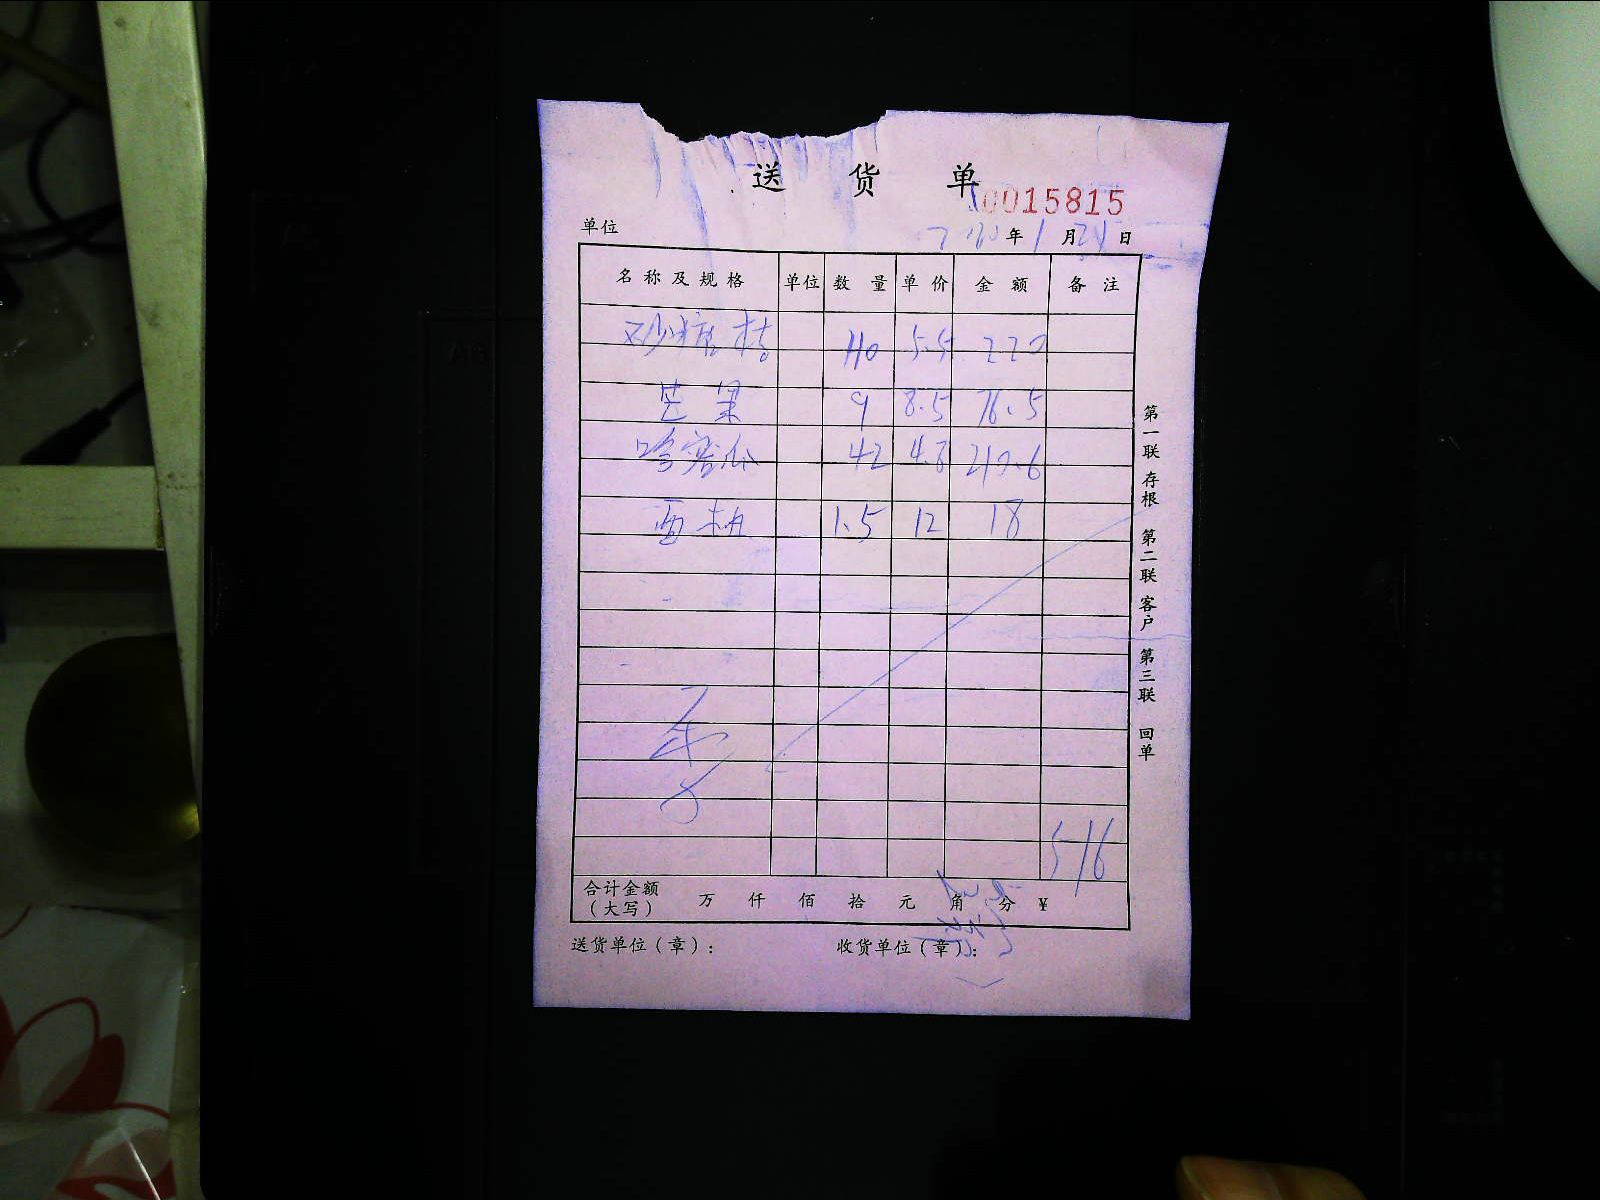 送货单
0015815
单位 年1月21日
名称及规格 单位 数量 单价 金额 备注
砂糖桔 40 5.5 220
芒果 9 8.5 76.5
哈密瓜 42 4.8 201.6
西柚 1.5 12 18
516
合计金额(大写) 万 仟 佰 拾 元 角 分 ¥
送货单位(章): 收货单位(章):
第一联 存根 第二联 客户 第三联 回单